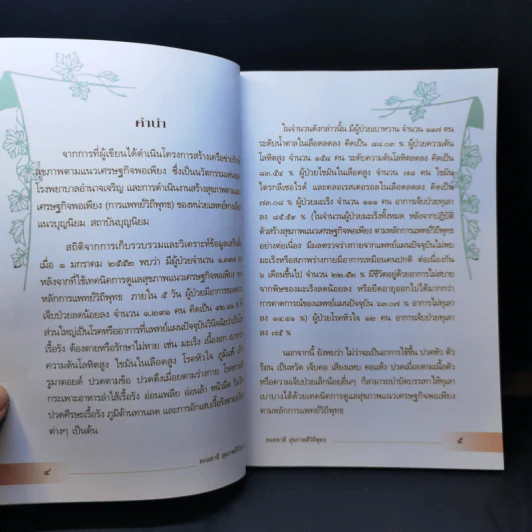 คำนำ
จากการที่ผู้เขียนได้ดำเนินโครงการสร้างเครือข่าย
สุขภาพตามแนวเศรษฐกิจพอเพียง ซึ่งเป็นนวัตกรรมเด่นของ
โรงพยาบาลอำนาจเจริญ และการดำเนินงานสร้างสุขภาพตาม
เศรษฐกิจพอเพียง (การแพทย์วิถีพุทธ) ของหน่วยแพทย์ทางเลือก
แนวบุญนิยม สถาบันบุญนิยม
สถิติจากการเก็บรวบรวมและวิเคราะห์ข้อมูลเสร็จสิ้น
เมื่อ ๑ มกราคม ๒๕๕๒ พบว่า มีผู้ป่วยจำนวน
หลังจากที่ใช้เทคนิคการดูแลสุขภาพแนวเศรษฐกิจพอเพียง
หลักการแพทย์วิถีพุทธ ภายใน ๕ วัน ผู้ป่วยมีอาการ
เจ็บป่วยลดน้อยลง จำนวน ๑,๒๙๑ คน คิดเป็น
ส่วนใหญ่เป็นโรคหรืออาการที่แพทย์แผนปัจจุบันวินิจฉัยว่าเป็น
เรื้อรัง ต้องตายหรือรักษาไม่หาย เช่น มะเร็ง เนื้องอก เบาหวาน
ความดันโลหิตสูง ไขมันในเลือดสูง โรคหัวใจ ภูมิแพ้
รูมาตอยด์ ปวดตามข้อ ปวดตึงเมื่อยตามร่างกาย โรค
กระเพาะอาหารลำไส้เรื้อรัง อ่อนเพลีย อ่อนล้า หน้ามืด วิงเวียน
ปวดศีรษะเรื้อรัง ภูมิต้านทานลด และการอักเสบเรื้อรังตาม
ต่างๆ เป็นต้น
๔
ถอดรหัส สุขภาพดีวิถีพุทธ
ในจำนวนดังกล่าวนั้น มีผู้ป่วยเบาหวาน จำนวน ๑๑๗ คน
ระดับน้ำตาลในเลือดลดลง คิดเป็น ๘๘.๐๓ % ผู้ป่วยความดัน
โลหิตสูง จำนวน ๑๕๘ คน ระดับความดันโลหิตลดลง คิดเป็น
๘๓.๕๔ % ผู้ป่วยไขมันในเลือดสูง จำนวน ๗๔ คน ไขมัน
ไตรกลีเซอไรด์ และคลอเรสเตอรอลในเลือดลดลง คิดเป็น
๗๗.๐๓ % ผู้ป่วยมะเร็ง จำนวน ๑๑๑ คน อาการเจ็บป่วยทุเลา
ลง ๘๕.๕๙ % (ในจำนวนผู้ป่วยมะเร็งทั้งหมด หลังจากปฏิบัติ
ตัวสร้างสุขภาพแนวเศรษฐกิจพอเพียง ตามหลักการแพทย์วิถีพุทธ
อย่างต่อเนื่อง มีผลตรวจร่างกายจากแพทย์แผนปัจจุบันไม่พบ
มะเร็งหรือสภาพร่างกายมีอาการเหมือนคนปกติ ต่อเนื่องกัน
๖ เดือนขึ้นไป จำนวน ๒๒.๕๒ % มีชีวิตอยู่ด้วยอาการไม่สบาย
จากพิษของมะเร็งลดน้อยลง หรือยืดอายุออกไปได้มากกว่า
การคาดการณ์ของแพทย์แผนปัจจุบัน ๖๓.๐๗ % อาการไม่ทุเลา
ลง ๑๔.๔๑ %) ผู้ป่วยโรคหัวใจ ๑๒ คน อาการเจ็บป่วยทุเลา
ลง ๗๕ %
นอกจากนี้ ยังพบว่า ไม่ว่าจะเป็นอาการไข้ขึ้น ปวดหัว ตัว
ร้อน เป็นหวัด เจ็บคอ เสียงแหบ คอแห้ง ปวดเมื่อยตามเนื้อตัว
หรือความเจ็บป่วยเล็กน้อยอื่นๆ ก็สามารถบำบัดบรรเทาให้ทุเลา
เบาบางได้ด้วยเทคนิคการดูแลสุขภาพแนวเศรษฐกิจพอเพียง
ตามหลักการแพทย์วิถีพุทธ
ถอดรหัส สุขภาพดีวิถีพุทธ
๕